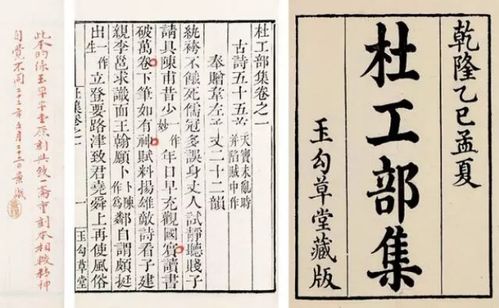 乾隆乙巳孟夏
杜工部集
玉勾草堂藏版
杜工部集卷之一
古詩五十五首 天寶未亂時并陷賊中作
奉贈韋左丞丈二十二韻
紈袴不餓死儒冠多誤身丈人試靜聽賤子
請具陳甫昔少一作妙年日早充觀國賓讀書
破萬卷下筆如有神賦料揚雄敵詩看子建
親李邕求識面王翰願卜陳作為鄰自謂頗挺
出一作生立登要路津致君堯舜上再使風俗
杜集卷一 一 玉勾草堂
此本乃係玉勾草堂原刻與後一為重刻本相較精神
自覺不同